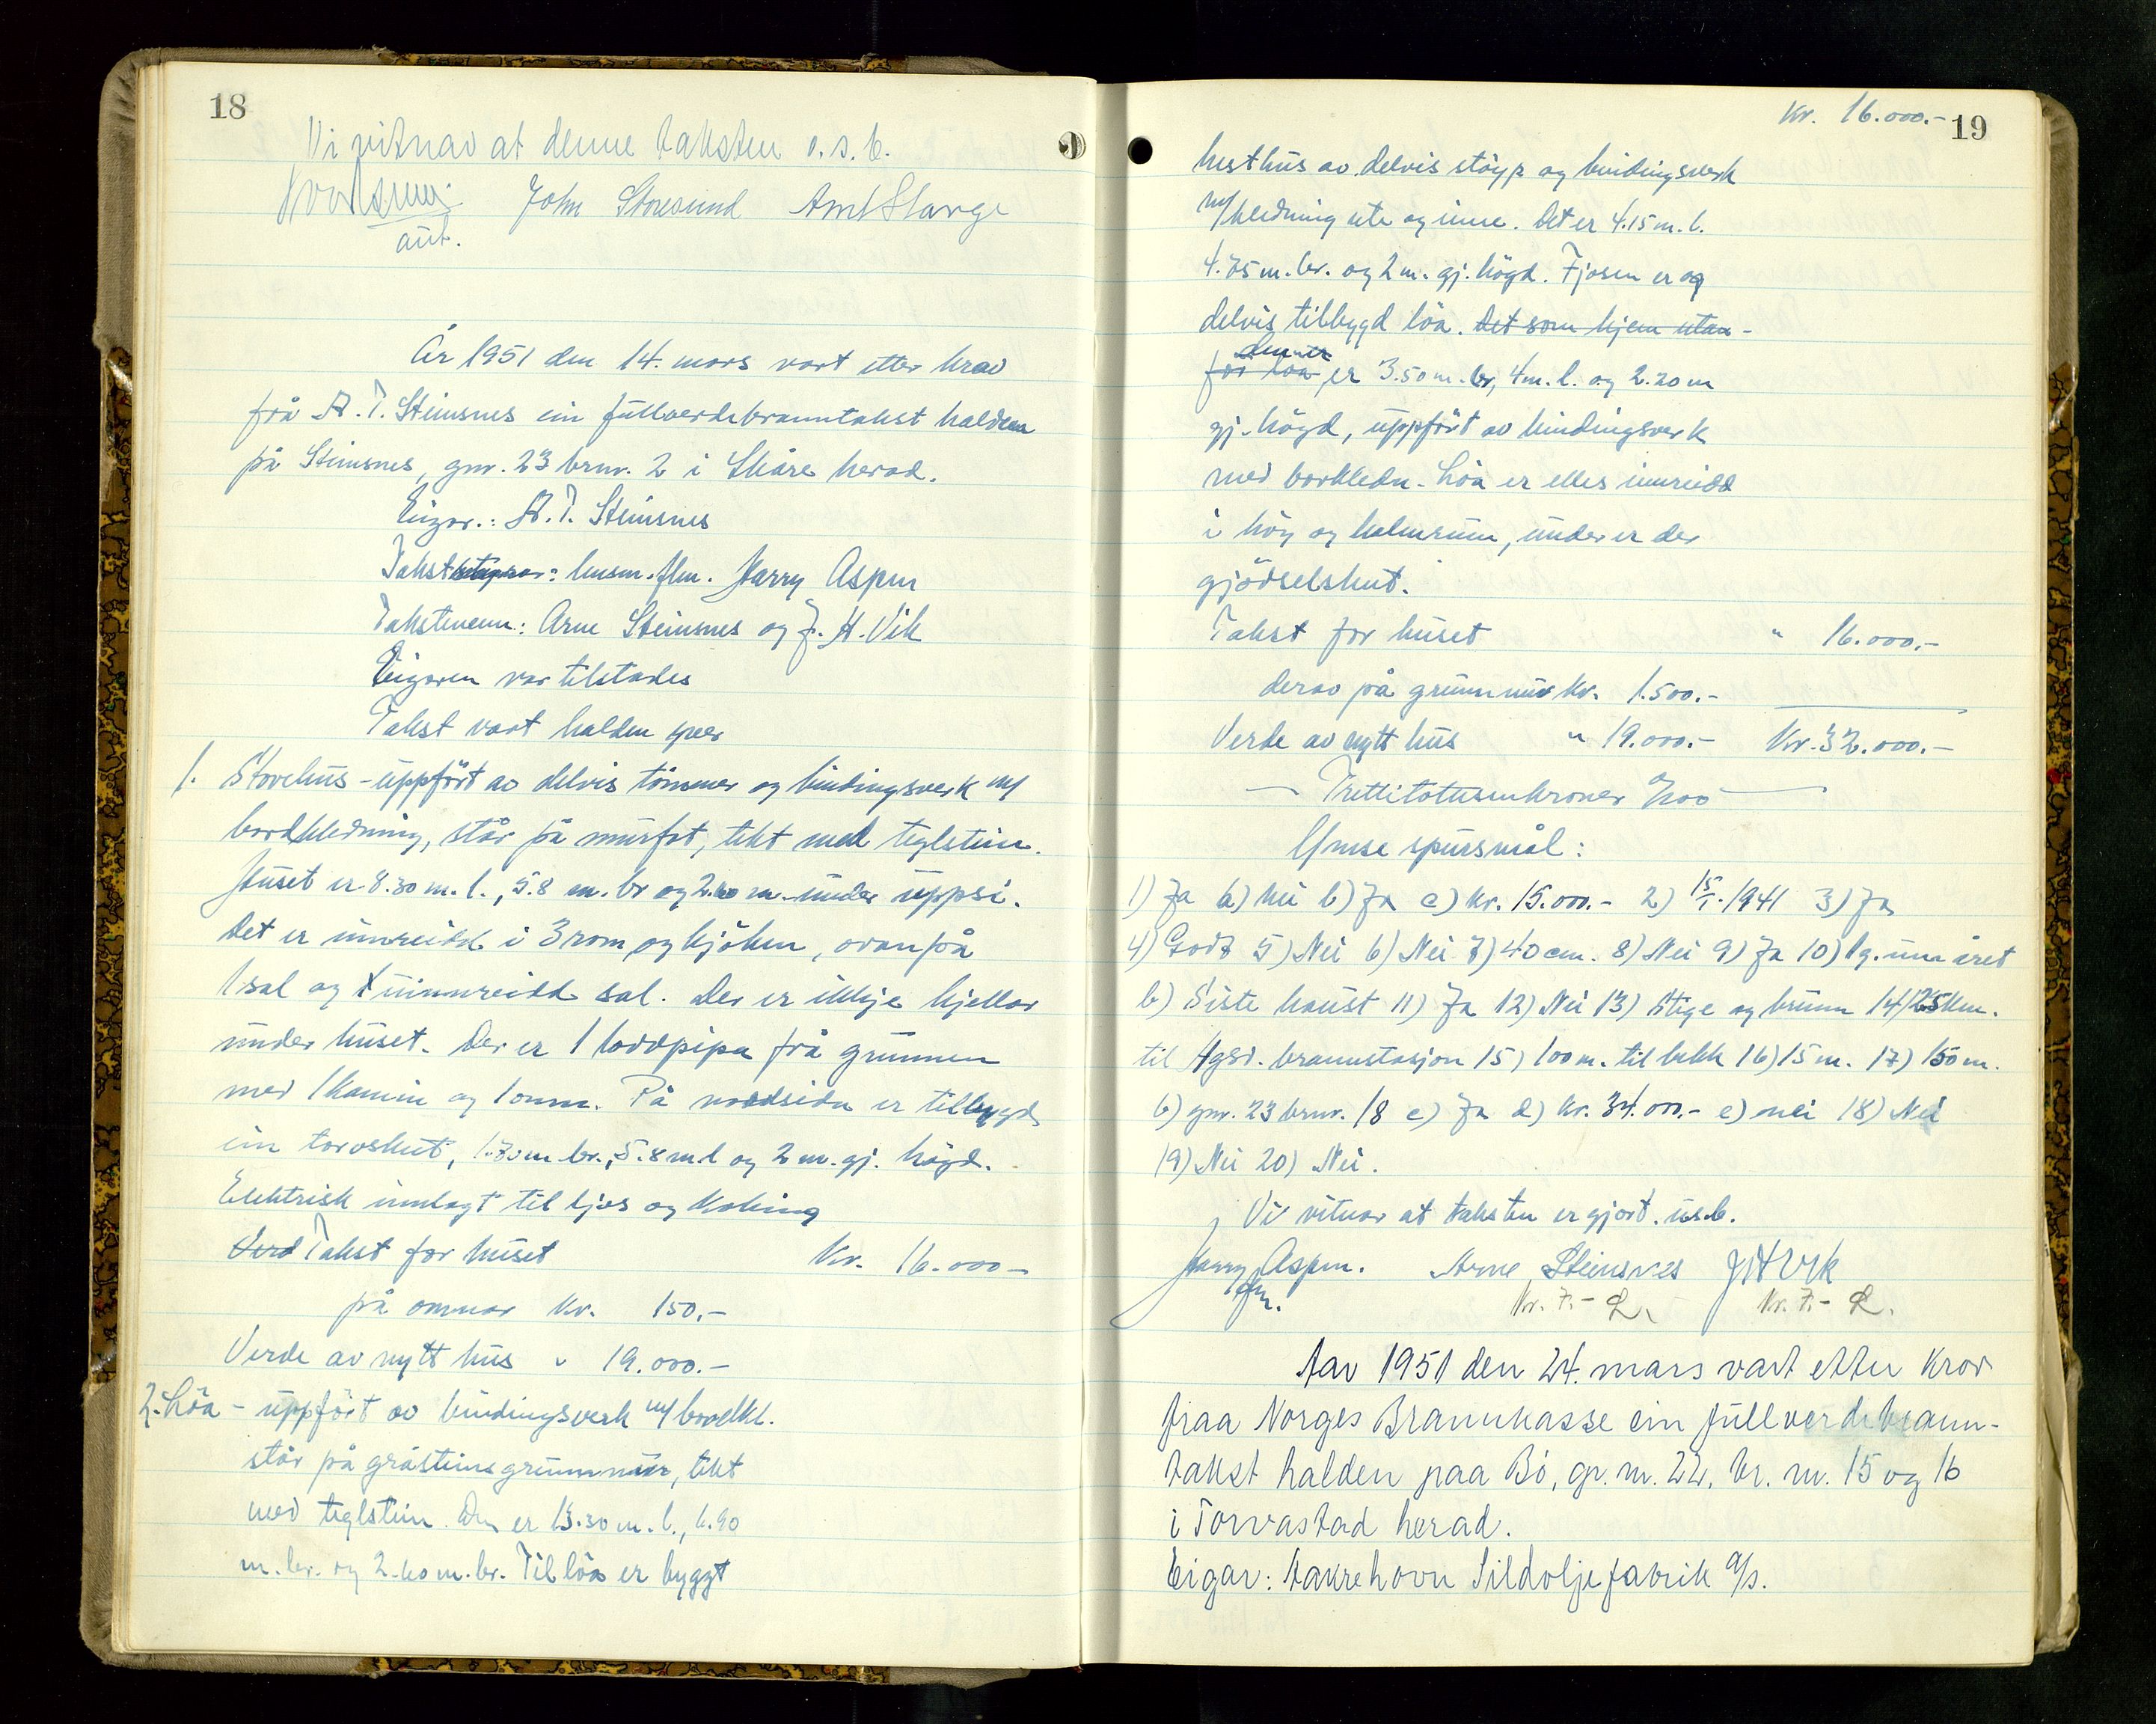 18
Vi vitnar at denne taksten o.s.b.
John Storesund Arnt Stange
aut.
År 1951 den 14. mars vart etter krav
frå A. T. Steinsnes ein fullverdebranntakst halden
på Steinsnes, gnr. 23 brnr. 2 i Skåre herad.
Eigar.: A. T. Steinsnes
Takst: lensm. flm. Harry Aspen
Takstmenn: Arne Steinsnes og J. H. Vik
Eigaren var tilstades
Takst vart halden yver
1. Stovehus - uppført av delvis tömmer og bindingsverk m/
bordkledning, står på murfot, tekt med teglstein.
Huset er 8.30 m. l., 5.8 m. br og 2.60 m. under uppsi.
Det er innreidd i 3 rom og kjöken, ovanpå
1 sal og 1 uinnreidd sal. Der er ikkje kjellar
under huset. Der er 1 loddpipa frå grunnen
med 1 kamin og 1 omn. På nordsida er tilbygd
ein torvskut, 1.70 m br., 5.8 m l og 2 m. gj. högd.
Elektrisk innlagt til ljos og koking
Verd Takst for huset Kr. 16.000 -
på omnar kr. 150.-
Verde av nytt hus " 19.000.-
2. Löa - uppfört av bindingsverk m/bordkl.
står på gråsteinsgrunnmur, tekt
med teglstein. Den er 13.30 m. l., 6.90
m. br. og 2.60 m. br. Til löa er byggt
Kr. 16.000.- 19
hesthus av delvis stöyp og bindingsverk
m/kledning ute og inne. Det er 4.15 m. l.
4.75 m. br. og 2 m. gj. högd. Fjosen er og
delvis tilbygd löa. Det som kjem utan-
den er
for löa er 3.50 m. br, 4 m. l. og 2.20 m
gj. högd, uppfört av bindingsverk
med bordkledn. Löa er elles innreidd
i höy og halmrum, under er der
gjödselskut.
Takst for huset " 16.000.-
derav på grunnmur kr. 1.500.-
Verde av nytt hus " 19.000.- Kr. 32.000.-
Trettitotusenkroner %oo
Ymse spursmål:
1) Ja a) Nei b) Ja c) kr. 15.000.- 2) 15/1.-1941 3) Ja
4) Godt 5) Nei 6) Nei 7) 40 cm. 8) Nei 9) Ja 10) 1 g. um året
b) Siste haust 11) Ja 12) Nei 13) Stige og brunn 14) 25 km.
til Hgsd. brannstasjon 15) 100 m. til bekk 16) 15 m. 17) 150 m.
b) gnr. 23 brnr. 18 c) Ja d) kr. 34.000.- e) nei 18) Nei
19) Nei 20) Nei.
Vi vitnar at taksten er gjort. u.s.b.
Harry Aspen. Arne Steinsnes J H Vik
flm. Kr. 7.- Kr. 7.-
Aar 1951 den 24. mars vart etter krav
fraa Norges Brannkasse ein fullverdebrann-
takst halden paa Bö, gr. nr. 22, br. nr. 15 og 16
i Torvastad herad.
Eigar: Aakrehavn Sildoljefabrik A/s.